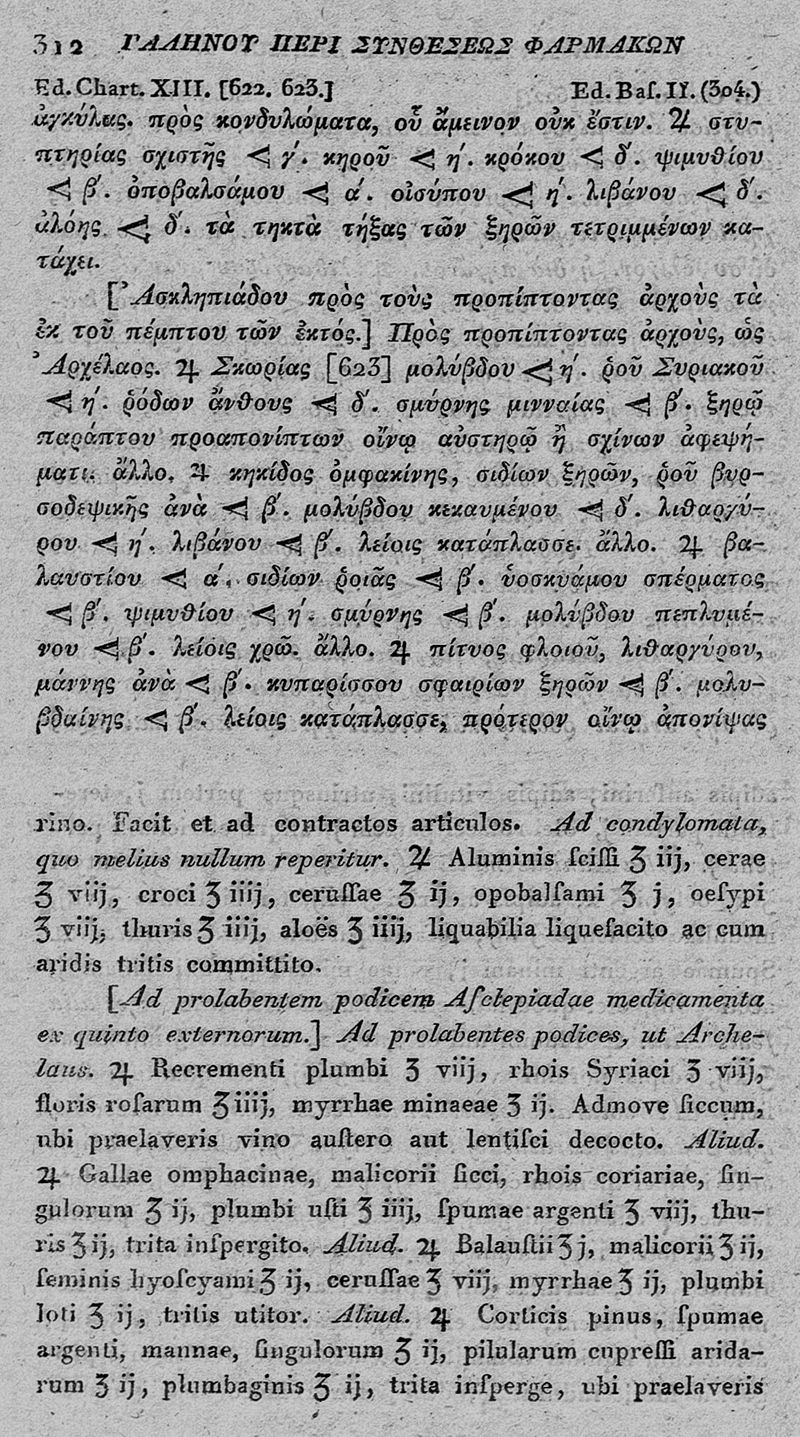 312 ΓΑΛΗΝΟΥ ΠΕΡΙ ΣΥΝΘΕΣΕΩΣ ΦΑΡΜΑΚΩΝ
Ed. Chart. XIII. [622. 623.] Ed. Baſ. II. (304.)
ἀγκύλας. πρὸς κονδυλώματα, οὗ ἄμεινον οὐκ ἔστιν. ♃ στυ-
πτηρίας σχιστῆς ⋖ γ΄. κηροῦ ⋖ η΄. κρόκου ⋖ δ΄. ψιμυθίου
⋖ β΄. ὀποβαλσάμου ⋖ α΄. οἰσύπου ⋖ η΄. λιβάνου ⋖ δ΄.
ἀλόης ⋖ δ΄. τὰ τηκτὰ τήξας τῶν ξηρῶν τετριμμένων κα-
τάχει.
[Ἀσκληπιάδου πρὸς τοὺς προπίπτοντας ἀρχοὺς τὰ
ἐκ τοῦ πέμπτου τῶν ἐκτός.] Πρὸς προπίπτοντας ἀρχοὺς, ὡς
Ἀρχέλαος. ♃ Σκωρίας [623] μολύβδου ⋖ η΄. ῥοῦ Συριακοῦ
⋖ η΄. ῥόδων ἄνθους ⋖ δ΄. σμύρνης μινναίας ⋖ β΄. ξηρῷ
παράπτου προαπονίπτων οἴνῳ αὐστηρῷ ἢ σχίνων ἀφεψή-
ματι. ἄλλο. ♃ κηκίδος ὀμφακίνης, σιδίων ξηρῶν, ῥοῦ βυρ-
σοδεψικῆς ἀνὰ ⋖ β΄. μολύβδου κεκαυμένου ⋖ δ΄. λιθαργύ-
ρου ⋖ η΄. λιβάνου ⋖ β΄. λείοις κατάπλασσε. ἄλλο. ♃ βα-
λαυστίου ⋖ α΄. σιδίων ῥοιᾶς ⋖ β΄. ὑοσκυάμου σπέρματος
⋖ β΄. ψιμυθίου ⋖ η΄. σμύρνης ⋖ β΄. μολύβδου πεπλυμέ-
νου ⋖ β΄. λείοις χρῶ. ἄλλο. ♃ πίτυος φλοιοῦ, λιθαργύρου,
μάννης ἀνὰ ⋖ β΄. κυπαρίσσου σφαιρίων ξηρῶν ⋖ β΄. μολυ-
βδαίνης ⋖ β΄. λείοις κατάπλασσε, πρότερον οἴνῳ ἀπονίψας
rino. Facit et ad contractos articulos. Ad condylomata,
quo melius nullum reperitur. ♃ Aluminis ſciſſi ʒ iij, cerae
ʒ viij, croci ʒ iiij, ceruſſae ʒ ij, opobalſami ʒ j, oeſypi
ʒ viij, thuris ʒ iiij, aloës ʒ iiij, liquabilia liquefacito ac cum
aridis tritis committito.
[Ad prolabentem podicem Aſclepiadae medicamenta
ex quinto externorum.] Ad prolabentes podices, ut Arche-
laus. ♃ Recrementi plumbi ʒ viij, rhois Syriaci ʒ viij,
floris roſarum ʒ iiij, myrrhae minaeae ʒ ij. Admove ſiccum,
ubi praelaveris vino auſtero aut lentiſci decocto. Aliud.
♃ Gallae omphacinae, malicorii ſicci, rhois coriariae, ſin-
gulorum ʒ ij, plumbi uſti ʒ iiij, ſpumae argenti ʒ viij, thu-
ris ʒ ij, trita inſpergito. Aliud. ♃ Balauſtii ʒ j, malicorii ʒ ij,
ſeminis hyoſcyami ʒ ij, ceruſſae ʒ viij, myrrhae ʒ ij, plumbi
loti ʒ ij, tritis utitor. Aliud. ♃ Corticis pinus, ſpumae
argenti, mannae, ſingulorum ʒ ij, pilularum cupreſſi arida-
rum ʒ ij, plumbaginis ʒ ij, trita inſperge, ubi praelaveris